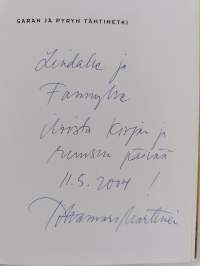 SARAN JA PYRYN TÄHTIHETKI
Lindalle ja
Fannylle
iloista kirjan ja
runsun päivää
11.5.2004 !